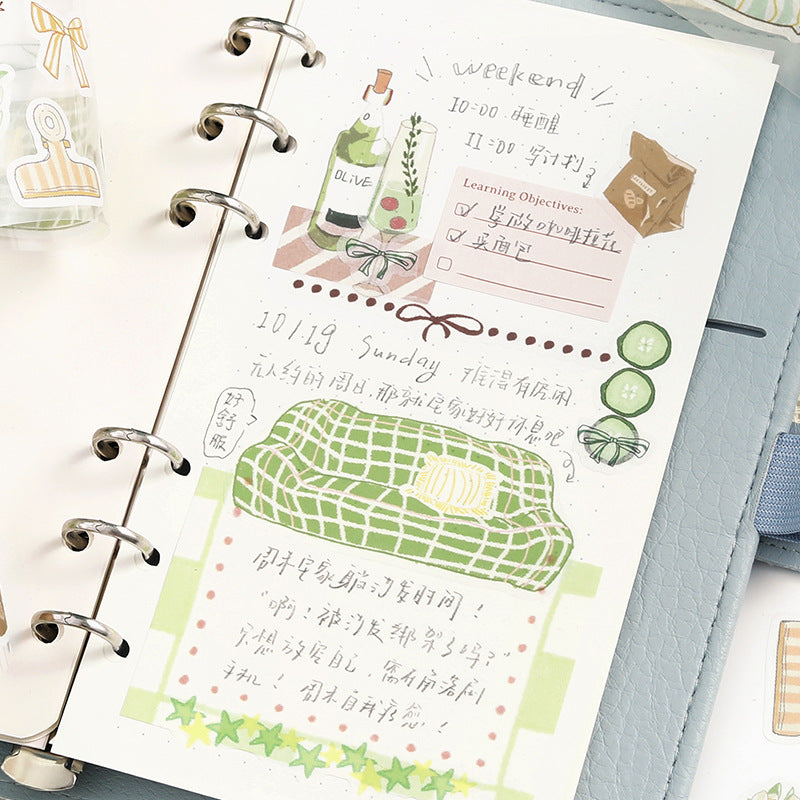 weekend
10:00 睡醒
11:00 写计划
OLIVE
Learning Objectives:
学做咖啡拉花
买面包
10/19 Sunday. 难得有空闲
无人约的周日,那就宅家好好休息吧
好舒服
周末宅家躺沙发时间!
"啊!被沙发绑架了吗?"
只想放空自己,窝在角落刷
手机!周末自我疗愈!